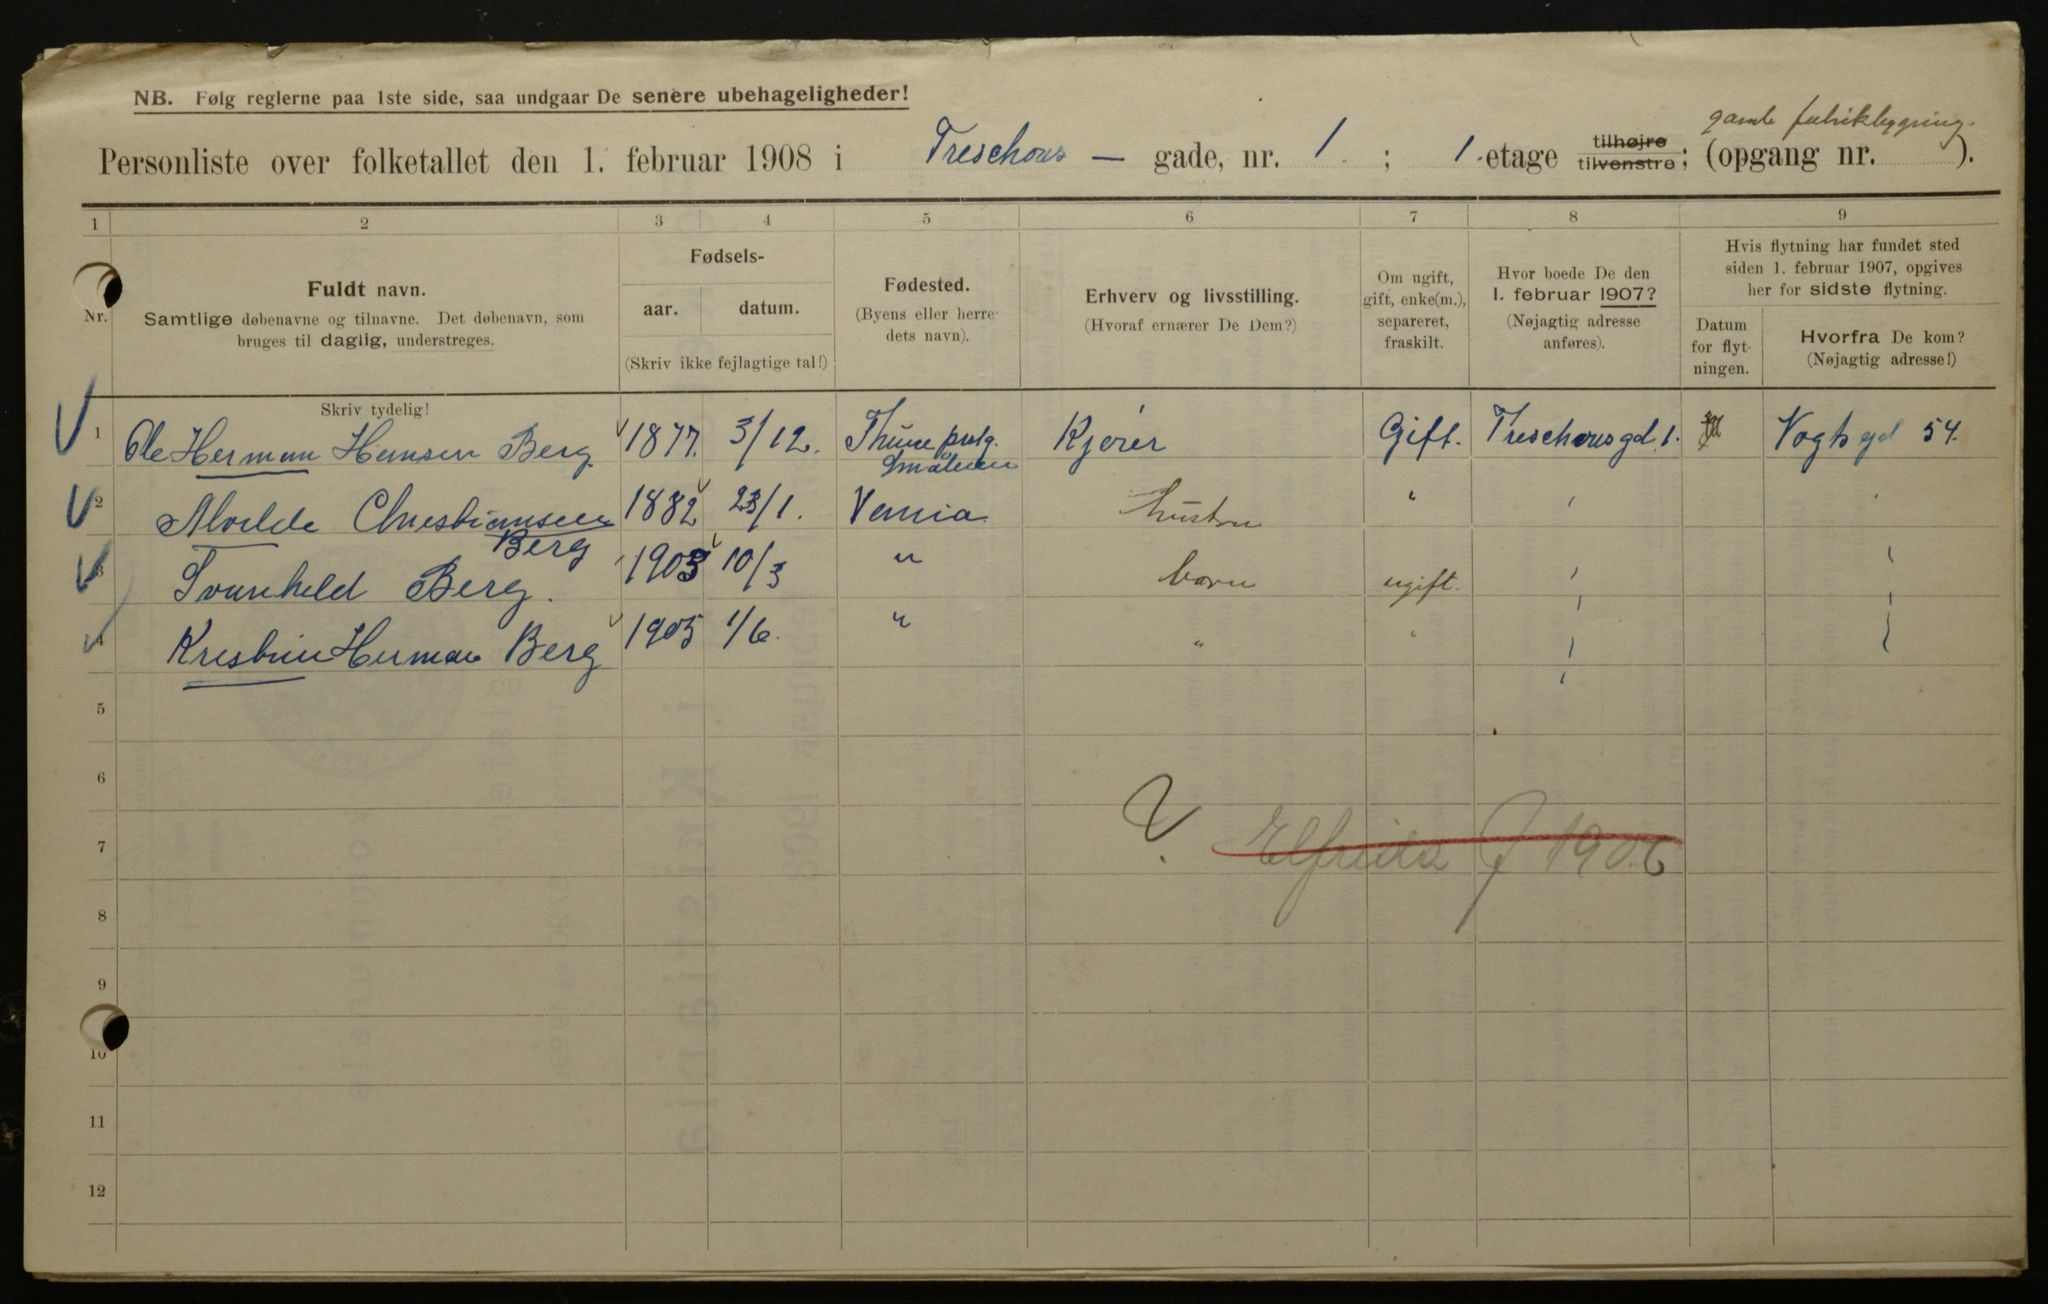 NB. Følg reglerne paa 1ste side, saa undgaar De senere ubehageligheder!
gamle fabrikbygning.
Personliste over folketallet den 1. februar 1908 i Treschous — gade, nr. 1 ; 1. etage tilhøjre tilvenstre; (opgang nr. ).
1 2 3 4 5 6 7 8 9
Nr.
Fuldt navn.
Samtlige døbenavne og tilnavne. Det døbenavn, som
bruges til daglig, understreges.
Skriv tydelig!
Fødsels-
aar. datum.
(Skriv ikke fejlagtige tal!)
Fødested.
(Byens eller herre-
dets navn).
Erhverv og livsstilling.
(Hvoraf ernærer De Dem?)
Om ugift,
gift, enke(m.),
separeret,
fraskilt.
Hvor boede De den
1. februar 1907?
(Nøjagtig adresse
anføres).
Hvis flytning har fundet sted
siden 1. februar 1907, opgives
her for sidste flytning.
Datum
for flyt-
ningen.
Hvorfra De kom?
(Nøjagtig adresse!)
1 Ole Herman Hansen Berg. 1877. 3/12. Smålenene Kjører Gift. Treschousgd. 1. Vogtsgd 54.
2 Alvilde Christiansen 1882 23/1. " hustru "
Berg
3 Berg. 1903 10/3 " barn ugift.
4 Herman Berg 1905 1/6. " " "
5
6
7 Elfrida f 1906
8
9
10
11
12